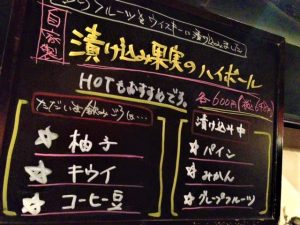 フルーツをウイスキーに漬け込みました
自家製
漬け込み果実のハイボール
HOTもおすすめです。
各600円
ただいま飲みごろは…
☆柚子
☆キウイ
☆コーヒー豆
漬け込み中
☆パイン
☆みかん
☆グレープフルーツ